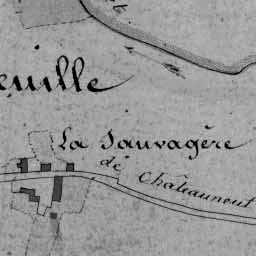 euille
La Sauvagère
de Chateauneuf